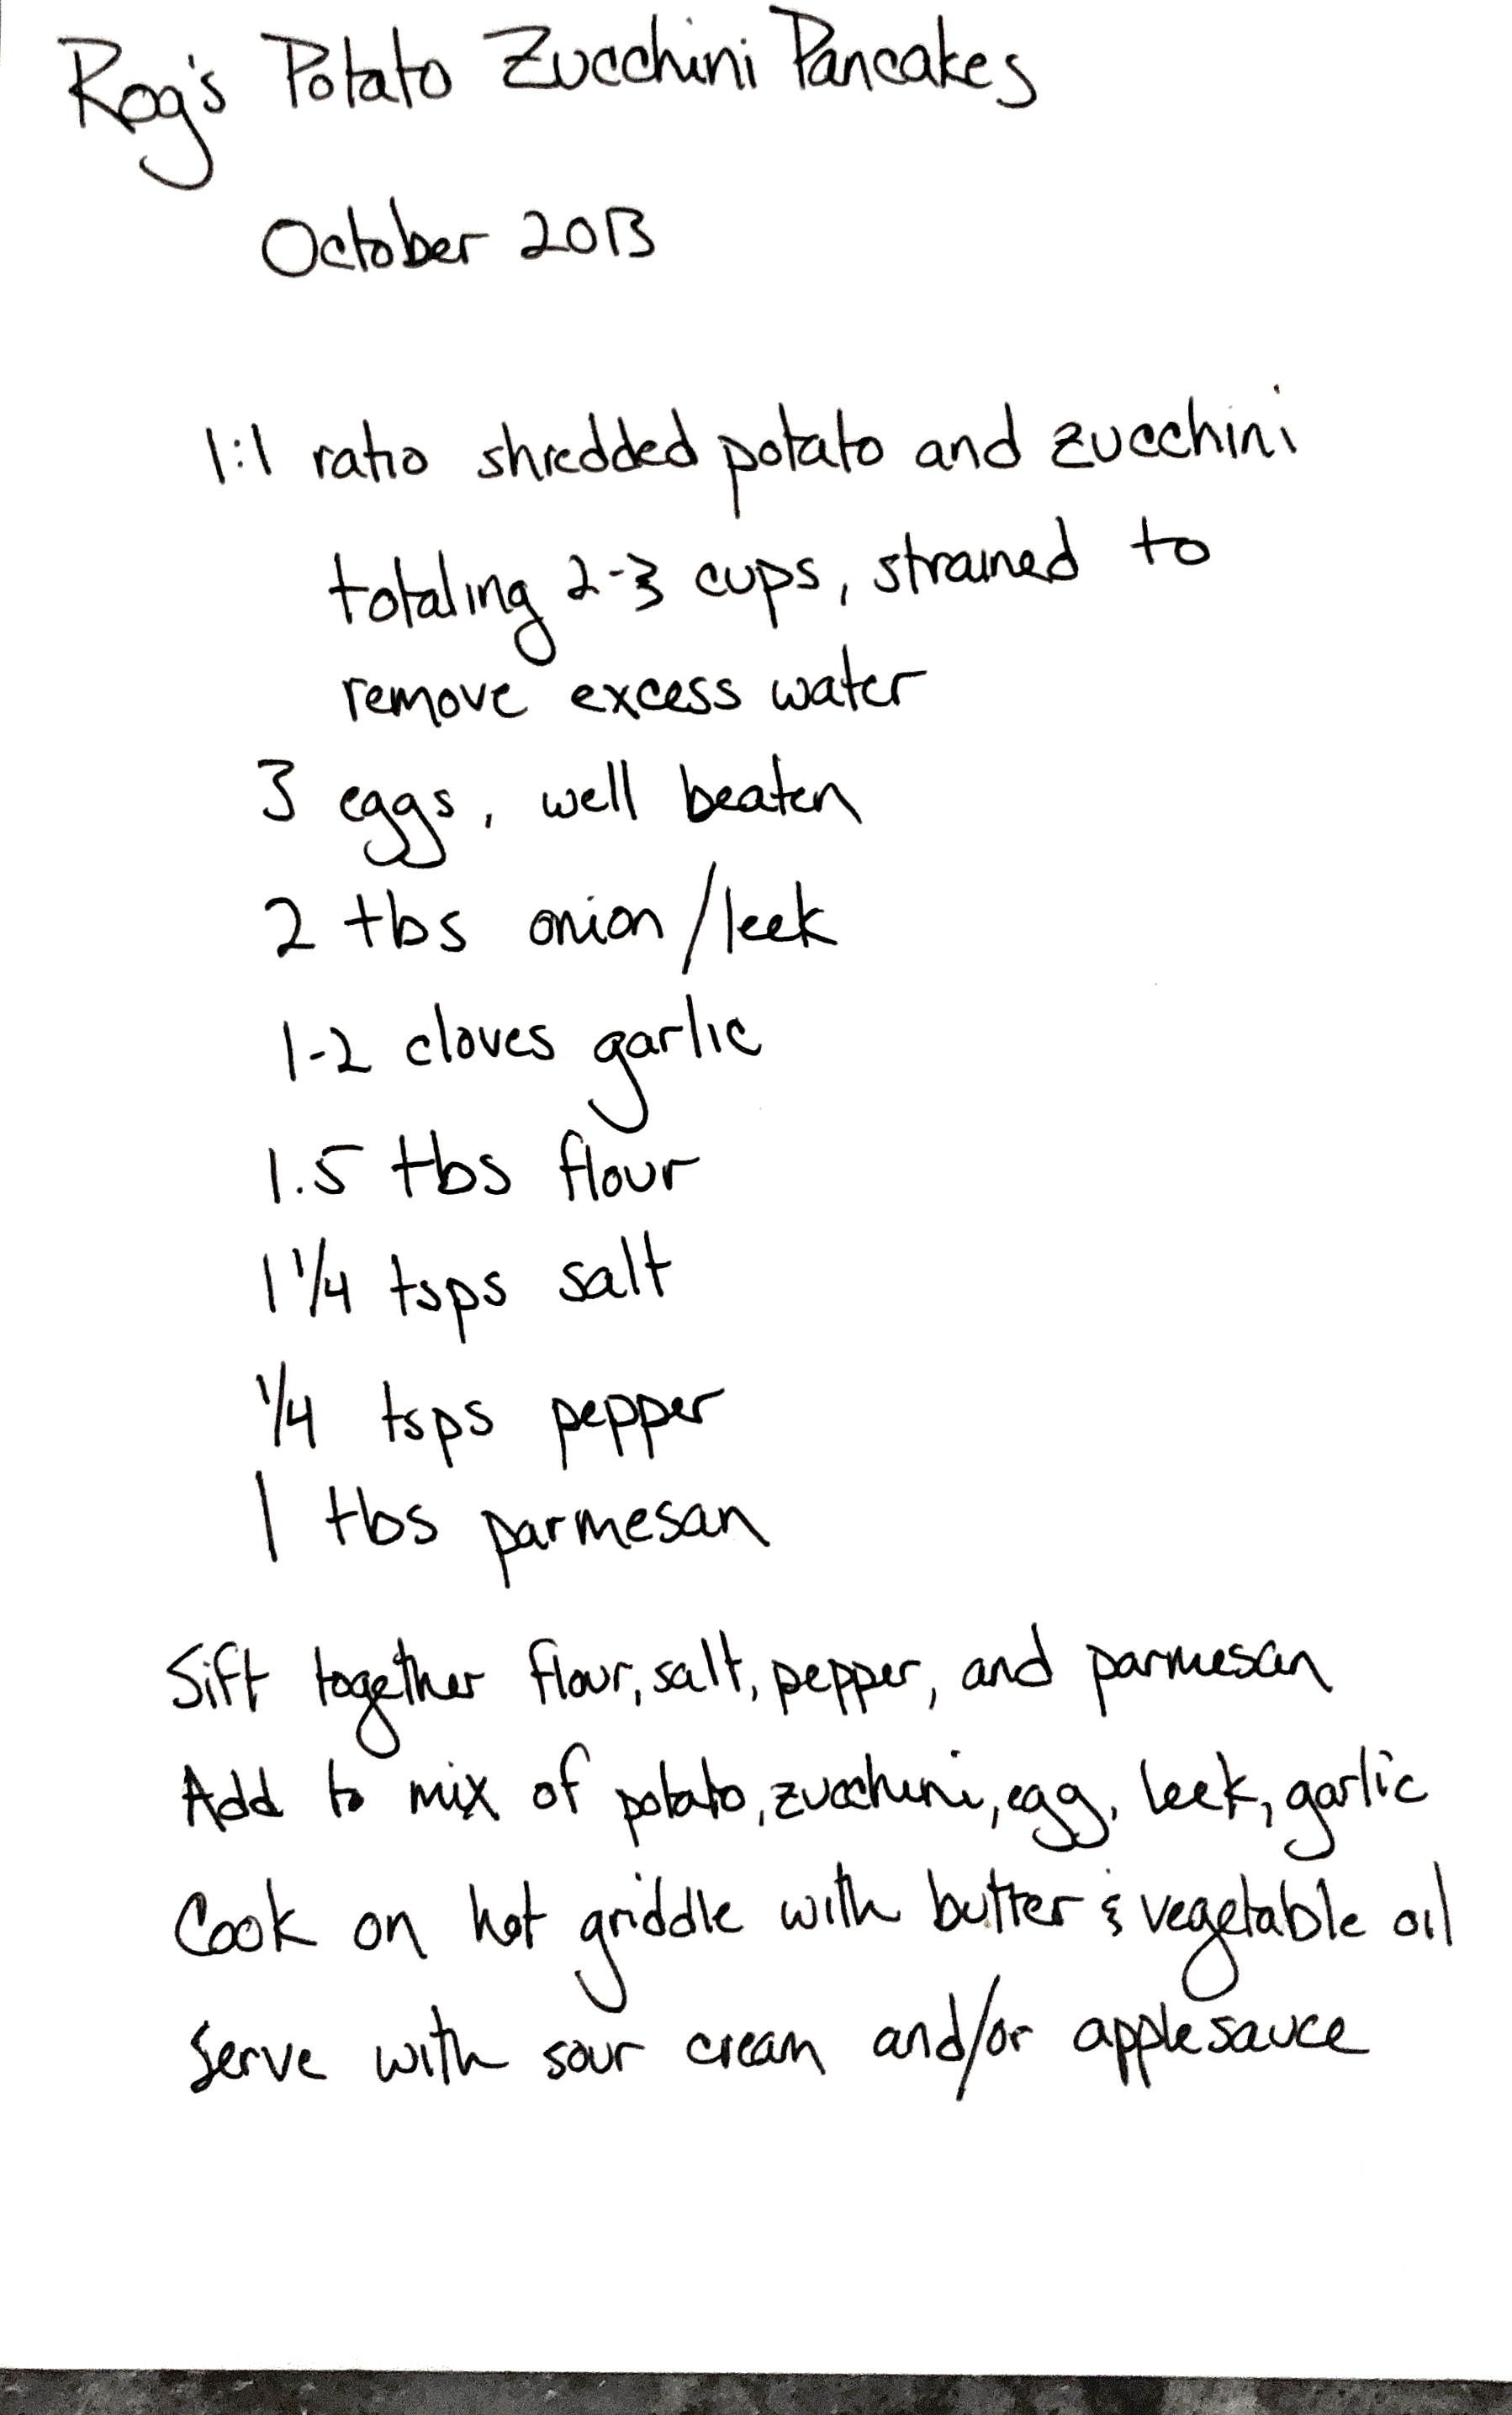 Rog's Potato Zucchini Pancakes
October 2013
1:1 ratio shredded potato and zucchini
totaling 2-3 cups, strained to
remove excess water
3 eggs, well beaten
2 tbs onion/leek
1-2 cloves garlic
1.5 tbs flour
1 1/4 tsps salt
1/4 tsps pepper
1 tbs parmesan
Sift together flour, salt, pepper, and parmesan
Add to mix of potato, zucchini, egg, leek, garlic
Cook on hot griddle with butter & vegetable oil
Serve with sour cream and/or applesauce